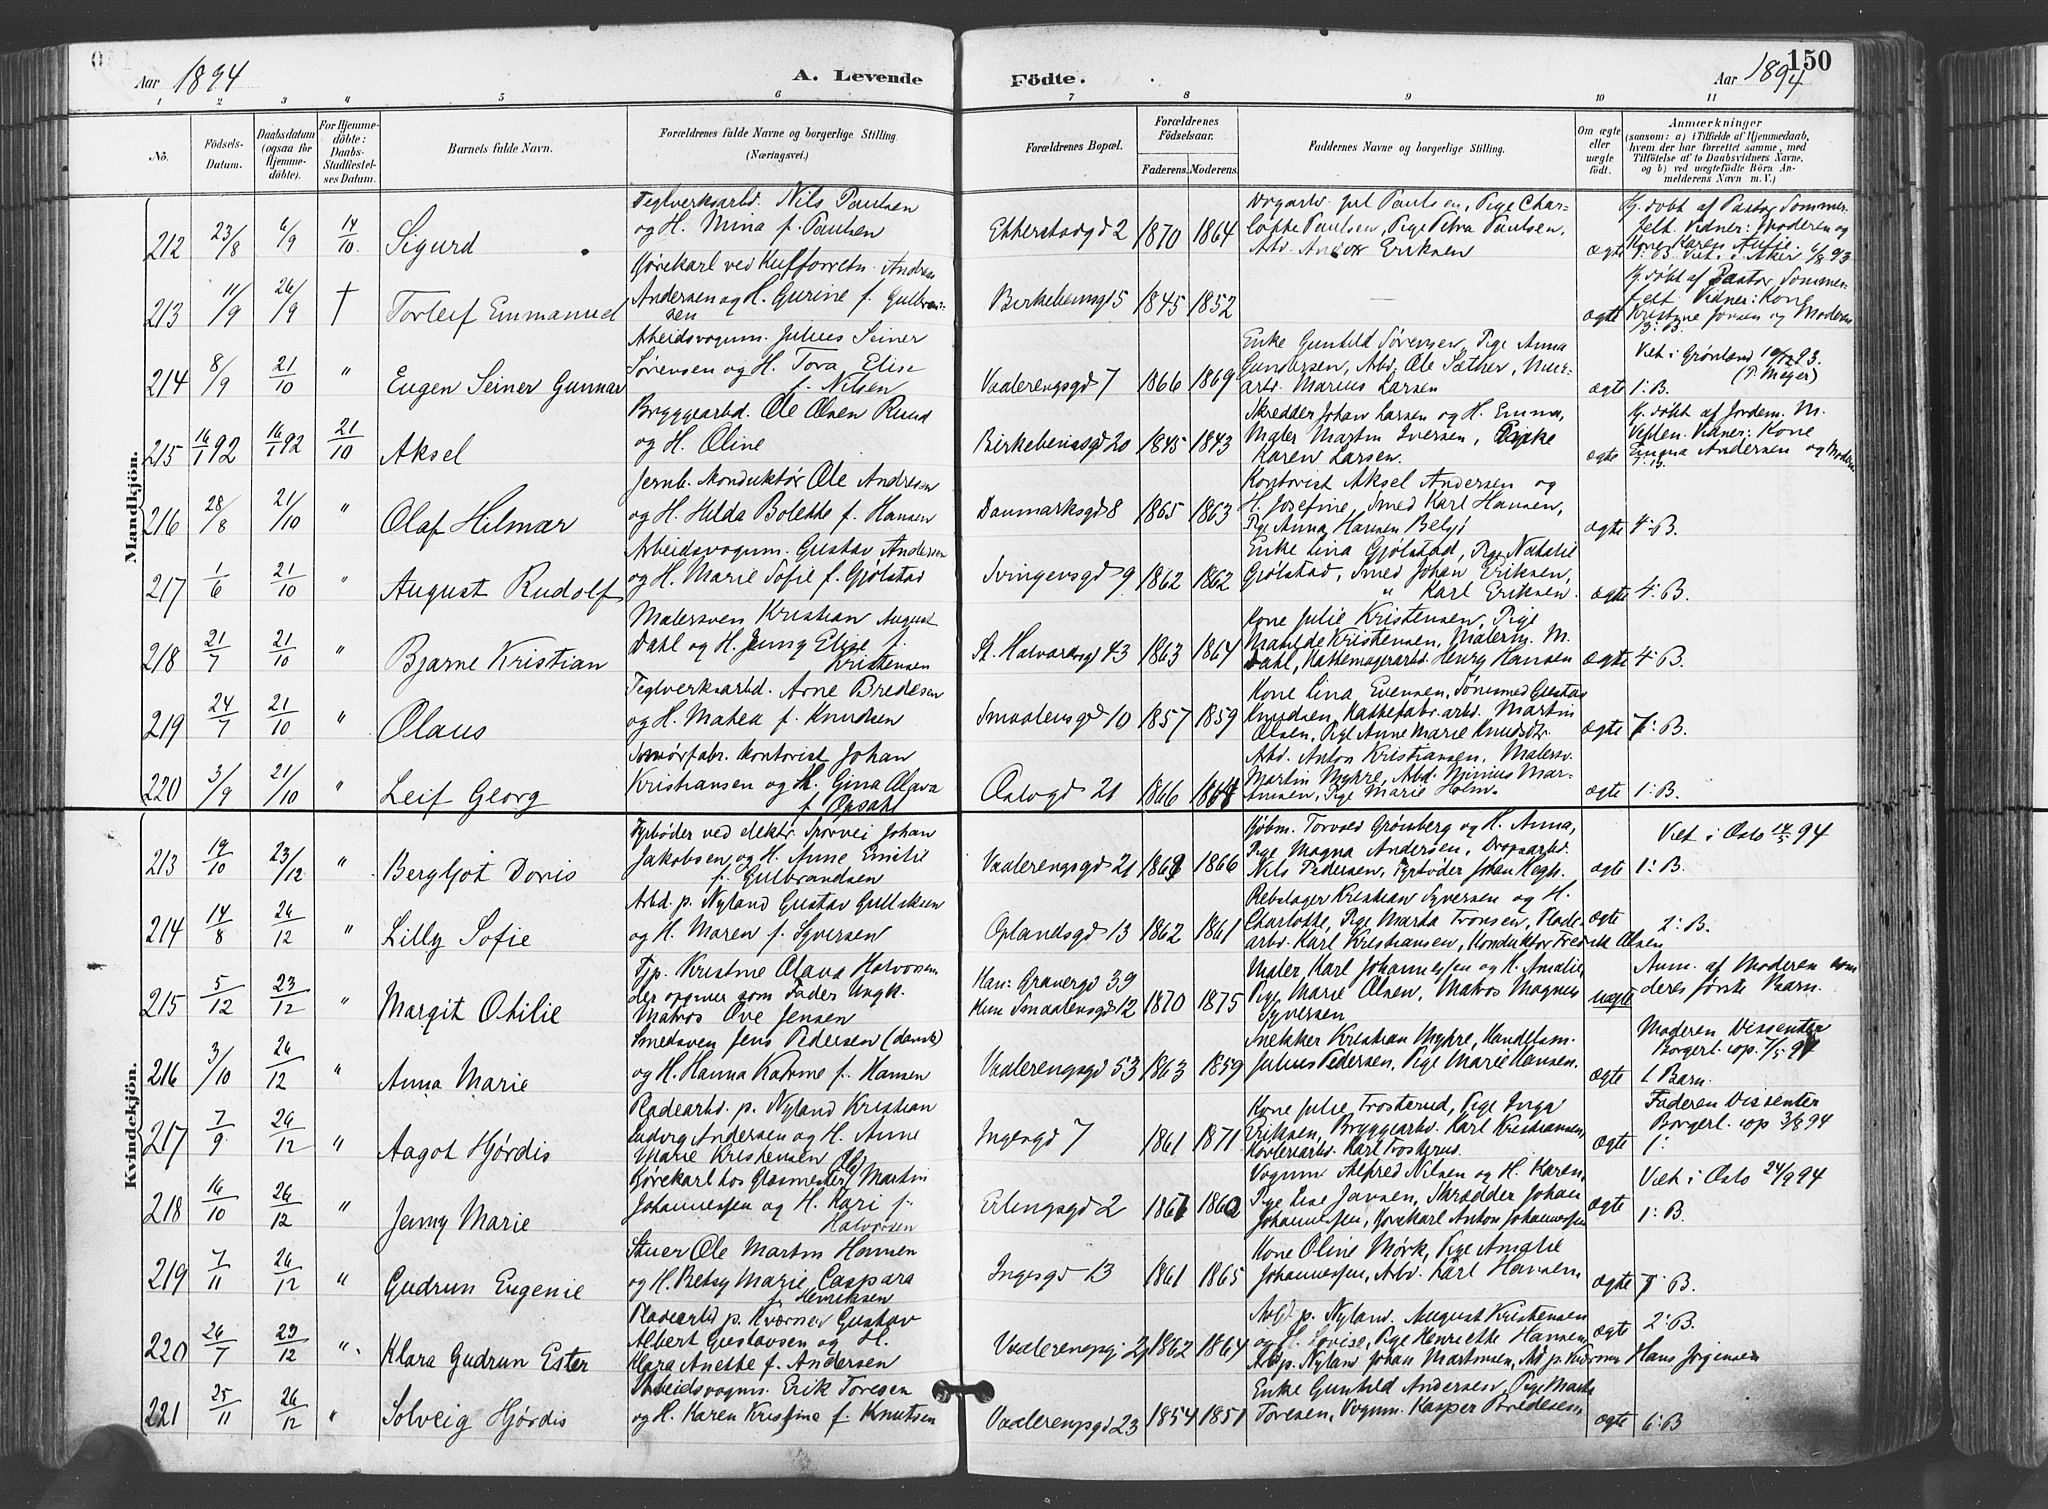 Aar 1894
A. Levende
Födte.
Aar 1894
150
1 2 3 4 5 6 7 8 9 10 11
No.
Födsels-Datum.
Daabsdatum (ogsaa for Hjemme-döbte).
For Hjemme-döbte: Daabs-Stadfestel-ses Datum.
Barnets fulde Navn.
Forældrenes fulde Navne og borgerlige Stilling.
(Næringsvei.)
Forældrenes Bopæl.
Forældrenes Födselsaar.
Faderens. Moderens.
Faddernes Navne og borgerlige Stilling.
Om ægte eller uægte födt.
Anmærkninger
(saasom: a) i Tilfælde af Hjemmedaab,
hvem der har forrettet samme, med
Tilföielse af to Daabsvidners Navne,
og b) ved uægtefödte Börn An-
melderens Navn m. V.)
Mandkjön.
Teglverksarbd. Nils Paulsen
og H. Mina f. Paulsen
212 23/8 6/9 14/10 Sigurd
Ekkerstadgd 2 1870 1864
Paulsen, Pige Char-
lotte Paulsen, Pige Petra Paulsen,
Arb. Eriksen
ægte
Hj. døbt af Pastor Sommer-
felt. Vidner: Moderen og
Kone Karen
Andersen og H. Gurine f. Gulbran-
sen
213 11/9 26/9 † Torleif Emmanuel
Birkebeinsgd 5 1845 1852
ægte
Hj. døbt af Pastor Sommer-
felt. Vidner: Kone
og Moderen
3: B.
Arbeidsvognm. Julius Seiner
Sørensen og H. Tora Elise
f. Nilsen
214 8/9 21/10 " Eugen Seiner Gunnar
Vaalerengsgd 7 1866 1869
Enke Gunhild Sørensen, Pige Anna
Gundersen, Arbd. Ole Sæther, Mur-
arb. Marius Larsen
ægte
Viet i Grønland
(P. Meyer)
1: B.
Bryggearbd. Ole Olsen Ruud
og H. Oline
215 16/1 92 16/1 92 21/10 Aksel
Birkebeinsgd 20 1845 1843
Skredder Johan Larsen og H. Emma,
Maler Martin Iversen,
Karen Larsen.
ægte
Hj. døbt af Jordem. M.
Vidner: Kone
Emma Andersen og Moderen
Jernb. Konduktør Ole Andresen
og H. Hilda Bolette f. Hansen
216 28/8 21/10 " Olaf Hilmar
Danmarksgd 8 1865 1863
Kontorist Aksel Andersen og
H. Josefine, Smed Karl Hansen,
Pige Anna Hansen
ægte 4: B.
Arbeidsvognm. Gustav Andersen
og H. Marie Sofie f. Gjølstad
217 1/6 21/10 " August Rudolf
Svingensgd 9 1862 1862
Enke Lina Gjølstad, Pige Natalie
Gjølstad, Smed Johan Eriksen,
" Karl Eriksen.
ægte 4: B.
Malersven Kristian August
Dahl og H. Jenny Elise f.
Kristensen
218 21/7 21/10 " Bjarne Kristian
St. Halvardsgd 43 1863 1864
Kone Julie Kristensen, Pige
Matilde Kristensen, Malerm. M.
Dahl, Hattemagerarbd. Henry Hansen
ægte 4: B.
Teglverksarbd. Arne Bredesen
og H. Mathea f. Knudsen
219 24/7 21/10 " Olaus
Smaalensgd 10 1857 1859
Kone Lina Evensen, Gustav
Knudsen, Hattefabr.arbd. Martin
Olsen, Pige Anne Marie
ægte 7: B.
Smørfabr. Kontorist Johan
Kristiansen og H. Gina Olava
f. Opsahl
220 3/9 21/10 " Leif Georg
Oslogd 21 1866
Arbd. Anton Kristiansen, Malersv.
Martin Myhre, Arbd. Mar-
Pige Marie Holm.
ægte 1: B.
Kvindekjön.
Fyrbøder ved elektr. Sporvei Johan
Jakobsen og H. Anne Emilie
f. Gulbrandsen
213 19/10 23/12 " Bergljot Doris
Vaalerengsgd 21 1866
Kjøbm. Torvald Grønberg og H. Anna,
Pige Magna Andersen,
Nils Pedersen, Fyrbøder Johan
ægte
Viet i Oslo 94
1: B.
Arbd. p. Nyland Gustav Gulliksen
og H. Maren f. Syversen
214 14/8 26/12 " Lilly Sofie
Oplandsgd 13 1862 1861
Rebslager Kristian Syversen og H.
Charlotte, Pige Marta Tronsen, Plade-
arbd. Karl Kristiansen, Konduktør Fredrik Olsen
ægte 2: B.
Tjp. Kristine Olava Halvorsen
der opgiver som Fader Ungk.
Matros Ove Jensen
215 5/12 23/12 " Margit Otilie
Han: Grønergd 39
Hun Smaalensgd 12 1870 1875
Maler Karl Johannessen og H. Amalie,
Pige Marie Olsen, Matros Magnus
Syversen
uægte
Anm. af Moderen som
deres første Barn.
Smedsven Jens Pedersen (dansk)
og H. Hanna Katrine f. Hansen
216 3/10 26/12 " Anna Marie
Vaalerengsgd 53 1863 1859
Snekker Kristian Myhre, Handelsm.
Julius Pedersen, Pige Marie Hansen.
ægte
Moderen Dissenter
Borgerl. vip. 7/5 9
1 Barn.
Pladearbd. p. Nyland Kristian
Ludvig Andersen og H. Anne
Marie Kristensen
217 7/9 26/12 " Aagot Hjørdis
Ingesgd 7 1861 1871
Kone Julie Trosterud, Pige Inga
Eriksen, Bryggearbd. Karl Kristiansen,
ægte
Faderen Dissenter
Borgerl. vip 3/8 94
1:
Kjørekarl hos Glasmester Martin
Johannessen og H. Kari f.
Halvorsen
218 16/10 26/12 " Jenny Marie
Erlingsgd 2 1867 1860
Vognm Alfred Nilsen og H. Karen,
Pige Else Jansen, Skrædder Johan
Johannessen, Kjørekarl Anton Johannessen
ægte
Viet i Oslo 24/9 94
1: B
Stuer Ole Martin Hansen
og H. Betsy Marie Caspara
f. Henriksen
219 7/11 26/12 " Gudrun Eugenie
Ingesgd 13 1861 1865
Kone Oline Mørk, Pige Amalie
Johannessen, Arbd. Karl Hansen.
ægte 7: B.
Pladearbd p. Kværner Gustav
Albert Gustavsen og H.
Klara Anette f. Andersen
220 26/7 29/12 " Klara Gudrun Ester
1862 1864
Arbd p. Nyland. August Kristensen
og H. Lovise, Pige Henriette Hansen,
Arb p. Nyland Johan Martinsen, Arb p. Kværner Hans Jørgensen
ægte
2: B.
Arbeidsvognm. Erik Toresen
og H. Karen Kristine f. Knutsen
221 25/11 26/12 " Solveig Hjørdis
Vaalerengsgd 23 1854 1851
Enke Gunhild Andersen, Pige
Toresen, Vognm. Kasper Bredesen
ægte 6: B